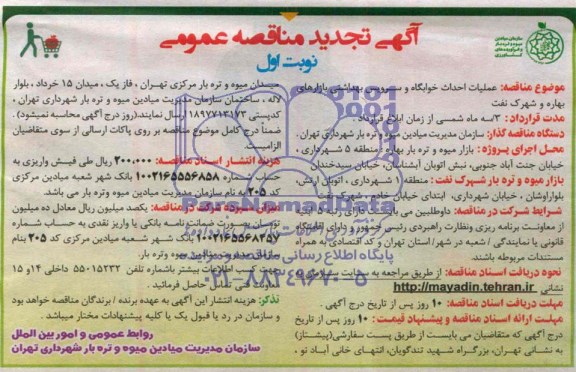 سازمان میادین
میوه و تره بار
و فرآورده های
کشاورزی
آگهی تجدید مناقصه عمومی
نوبت اول
موضوع مناقصه: عملیات احداث خوابگاه و سرویس بهداشتی بازارهای
بهاره و شهرک نفت
مدت قرارداد: ۳/سه ماه شمسی از زمان ابلاغ قرارداد
دستگاه مناقصه گذار: سازمان مدیریت میادین میوه و تره بار شهرداری تهران.
محل اجرای پروژه: بازار میوه و تره بار بهاره: منطقه ۵ شهرداری،
خیابان جنت آباد جنوبی، نبش اتوبان آبشناسان، خیابان سیدخندان
بازار میوه و تره بار شهرک نفت: منطقه ۱ شهرداری، اتوبان ارتش،
بلوار اوشان، خیابان شهرداری، ابتدای خیابان
شرایط شرکت در مناقصه: داوطلبین می بایست دارای رتبه ۵ ابنیه
از معاونت برنامه ریزی ونظارت راهبردی رئیس جمهور و دارای اقامتگاه
قانونی یا نمایندگی / شعبه در شهر/ استان تهران و کد اقتصادی به همراه
مستندات مربوطه باشند.
نحوه دریافت اسناد مناقصه: از طریق مراجعه به سایت سازمان به
نشانی http://mayadin.tehran.ir
مهلت دریافت اسناد مناقصه: ۱۰ روز پس از تاریخ درج آگهی.
مهلت ارائه اسناد مناقصه و پیشنهاد قیمت: ۱۰ روز پس از تاریخ
درج آگهی که متقاضیان می بایست از طریق پست سفارشی(پیشتاز)
به نشانی تهران، بزرگراه شهید تندگویان، انتهای خانی آباد نو،
میدان میوه و تره بار مرکزی تهران، فاز یک، میدان ۱۵ خرداد، بلوار
لاله، ساختمان سازمان مدیریت میادین میوه و تره بار شهرداری تهران،
کدپستی ۱۸۹۷۷۱۳۱۷۳ ارسال نمایند.(روز درج آگهی محاسبه نمیشود).
ضمناً درج کامل موضوع مناقصه بر روی پاکات ارسالی از سوی متقاضیان
الزامیست.
هزینه انتشار اسناد مناقصه: ۲۰۰.۰۰۰ ریال طی فیش واریزی به
حساب شماره ۱۰۰۲۱۶۵۵۵۶۸۵۸ بانک شهر شعبه میادین مرکزی
کد ۲۰۵ به نام سازمان مدیریت میادین میوه وتره بار می باشد.
میزان سپرده شرکت در مناقصه: یکصد میلیون ریال معادل ده میلیون
تومان بصورت ضمانت نامه بانکی یا واریز نقدی به حساب شماره
۱۰۰۲۱۶۵۵۶۸۴۵۷ بانک شهر شعبه میادین مرکزی کد ۲۰۵ بنام
سازمان مدیریت میادین میوه وتره بار.
جهت کسب اطلاعات بیشتر باشماره تلفن ۵۵۰۱۵۲۳۲ داخلی ۱۴ و ۱۵
حاصل فرمائید.
تذکر: هزینه انتشار این آگهی به عهده برنده / برندگان مناقصه خواهد بود
و سازمان در رد یا قبول یک یا کلیه پیشنهادات مختار میباشد.
روابط عمومی و امور بین الملل
سازمان مدیریت میادین میوه و تره بار شهرداری تهران
ParsNamadData
پایگاه اطلاع رسانی
۰۲۱-۸۸۳۴۹۶۷۰-۵